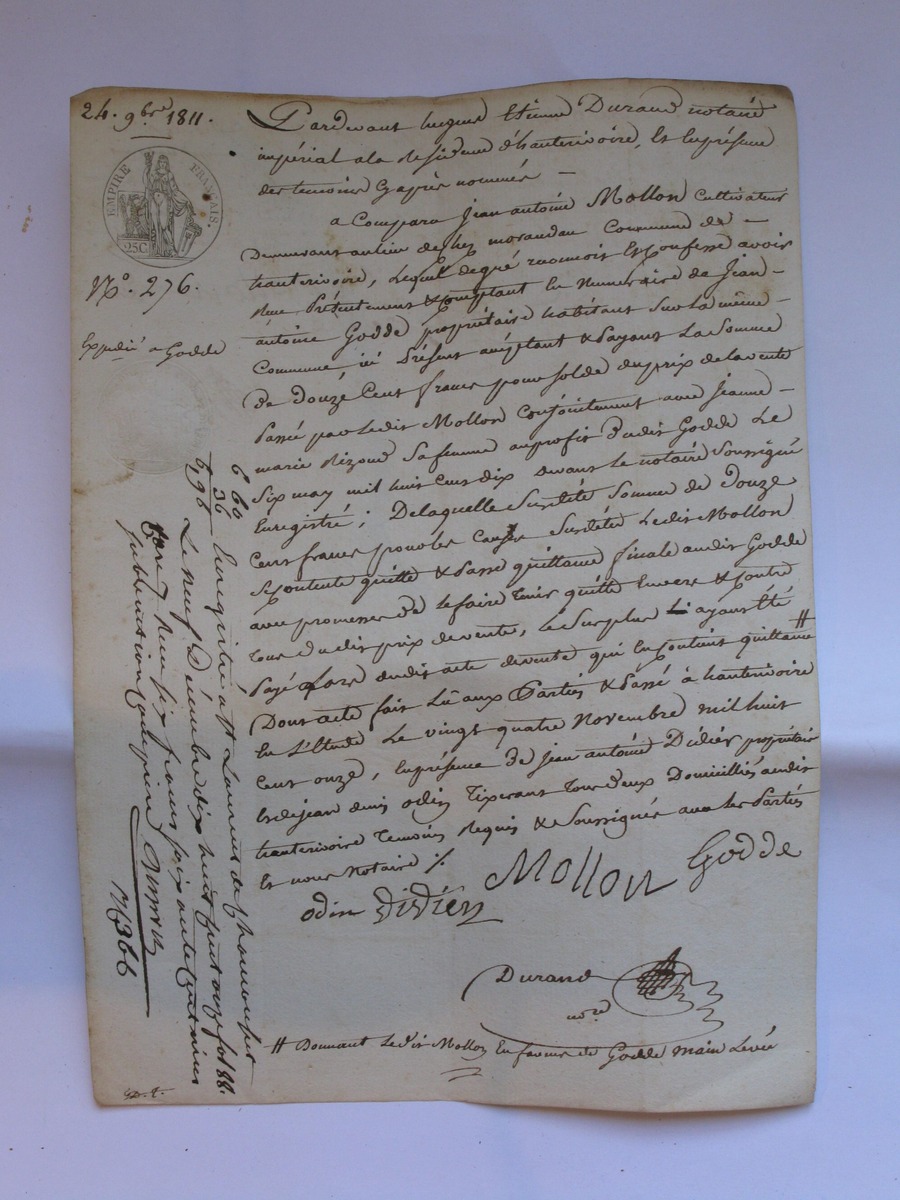 24. 9bre 1811.
EMPIRE FRANÇAIS.
25C
No. 276.
Expédié a Godde
Pardevant hugues Etienne Durand notaire
impérial a la Residence d'hauterivoire, Et En présence
des temoins Cy après nommés —
a Comparu Jean antoine Mollon Cultivateur
Demeurant au lieu de chez morandau Commune de —
hauterivoire, Lequel de gré reconnoit Et Confesse avoir
Reçu Présentement & Comptant En Numeraire de Jean —
antoine Godde propriétaire habitant sur la même —
Commune ici Présent acceptant & Payant La Somme
de Douze Cent francs pour solde du prix de la vente
Passé par Ledit Mollon Conjointement avec Jeanne —
marie Rizoud sa femme au profit dudit Godde Le
Six may mil huit cent dix devant le notaire Soussigné
Enregistré ; De laquelle Susdite Somme de Douze
Cent francs pour les Causes Susdites Ledit Mollon
Se Contente quitte & Passe quittance finale audit Godde
avec promesse de le faire tenir quitte Envers & Contre
tous dudit prix de vente, Le Surplus ayant été
Payé lors dudit acte de vente qui En Contient quittance #
Dont acte fait Lu aux Parties & Passé à hauterivoire
En L'Etude Le vingt quatre Novembre mil huit
Cent onze, En présence de Jean antoine Didier propriétaire
Et de jean denis odin Tixerant tous deux Domiciliés audit
hauterivoire Temoins Requis & Soussignés avec les Parties
Et nous Notaire ./.
odin Didier Mollon Godde
Durand
nore
# Donnant Ledit Mollon En faveur de Godde main Levée
6 60
36
6,96
Enregistré a St Laurent de Chamousset
Le neuf Décembre dix huit cent onze fol 188.
Reçu six francs soixante centimes